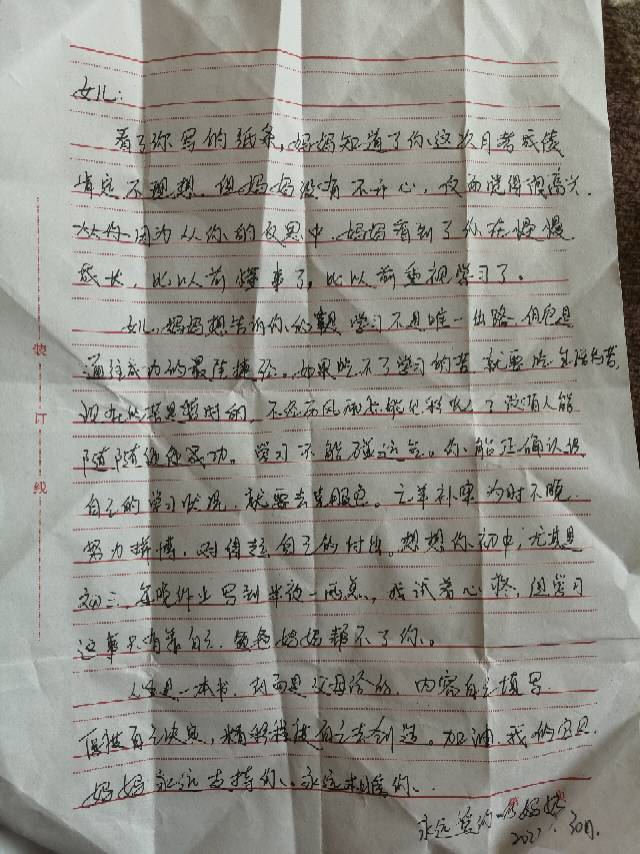 女儿:
看了你写的纸条,妈妈知道了你这次月考成绩
肯定不理想,但妈妈没有不开心,反而觉得很高兴.
因为从你的反思中,妈妈看到了你在慢慢
成长,比以前懂事了,比以前重视学习了。
女儿,妈妈想告诉你的是学习不是唯一出路但它是
通往成功的最佳捷径。如果吃不了学习的苦就要吃生活的苦,
现在的苦是暂时的,不经历风雨怎能见彩虹,没有人能
随随便便成功。学习不能碰运气。你能正确认识
自己的学习状况,就要去克服它。亡羊补牢为时不晚.
努力拼博,对得起自己的付出。想想你初中,尤其是
初三,每晚作业写到半夜一两点,我试着心疼,但学习
这事只有靠自己,爸爸妈妈帮不了你。
人生是一本书,封面是父母给的,内容自己填写
厚度自己决定,精彩程度自己去创造。加油,我的宝贝.
妈妈永远支持你、永远相信你.
永远爱你的妈妈
2021. 30日.
装
订
线